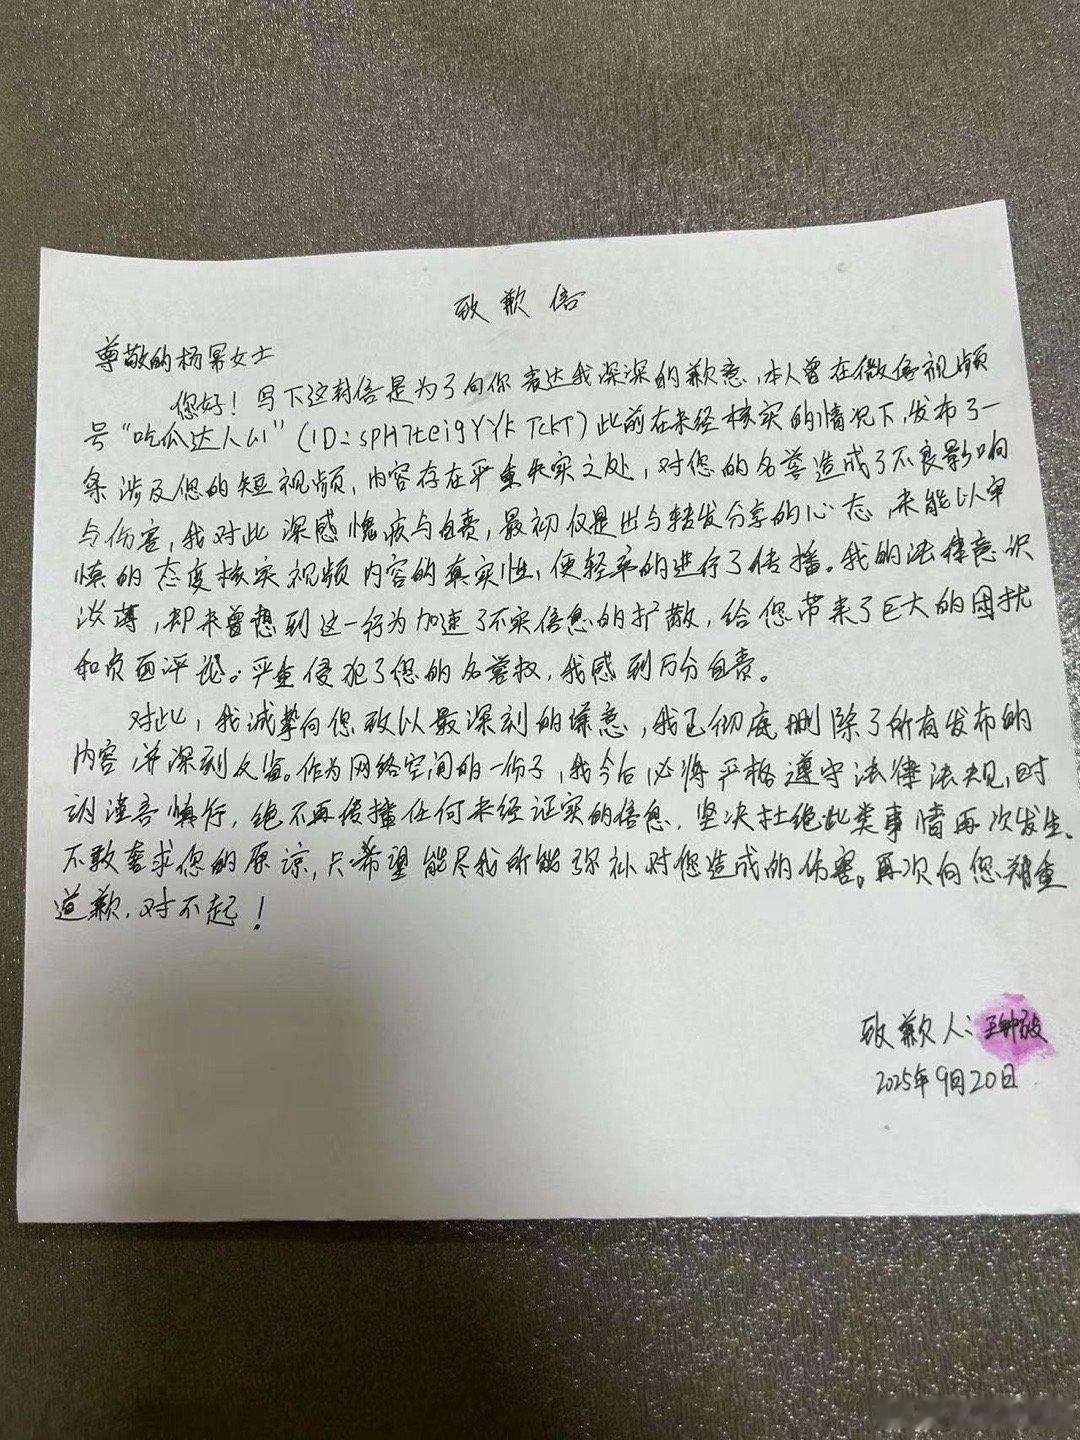 致歉信
尊敬的杨幂女士
您好！写下这封信是为了向你表达我深深的歉意，本人曾在微信视频
号“吃瓜达人山”（ID：sph7tei9YYkTckT）此前在未经核实的情况下，发布了一
条涉及您的短视频，内容存在严重失实之处，对您的名誉造成了不良影响
与伤害，我对此深感愧疚与自责，最初仅是出与转发分享的心态，未能以审
慎的态度核实视频内容的真实性，便轻率的进行了传播。我的法律意识
淡薄，却未曾想到这一行为加速了不实信息的扩散，给您带来了巨大的困扰
和负面评论。严重侵犯了您的名誉权，我感到万分自责。
对此，我诚挚向您致以最深刻的歉意，我已彻底删除了所有发布的
内容，并深刻反省。作为网络空间的一份子，我今后必将严格遵守法律法规，时
刻谨言慎行，绝不再传播任何未经证实的信息，坚决杜绝此类事情再次发生。
不敢奢求您的原谅，只希望能尽我所能弥补对您造成的伤害。再次向您郑重
道歉，对不起！
致歉人：王钟
2025年9月20日